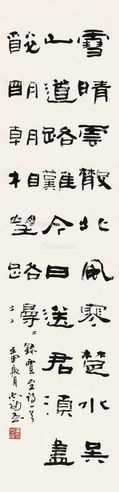 雪晴雲散北風寒楚水吳
山道路難今日送君須盡
醉明朝相望路漫〻
錄賈至詩一首